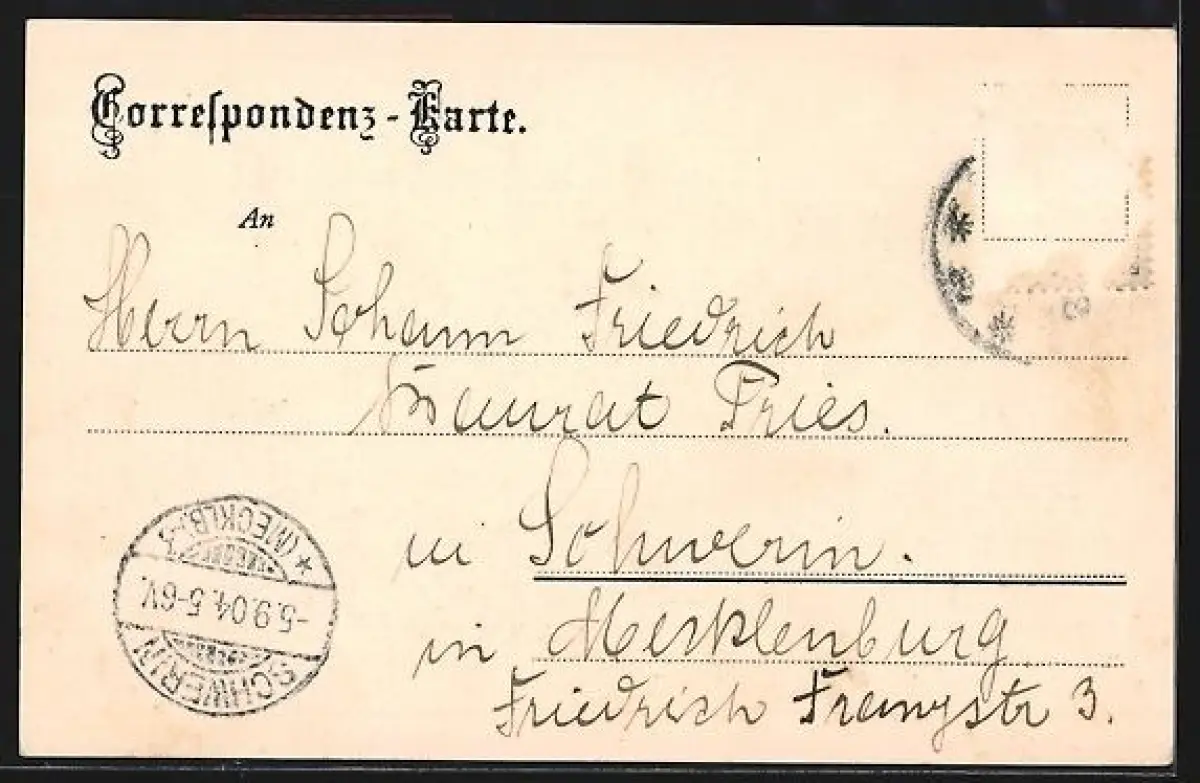 Correspondenz-Karte.
An
Herrn Johann Friedrich
Baurat Fries.
in Schwerin.
in Mecklenburg
Friedrich Franzstr 3.
SCHWERIN
-5.9.04.5-6V.
* (MECKLB.)